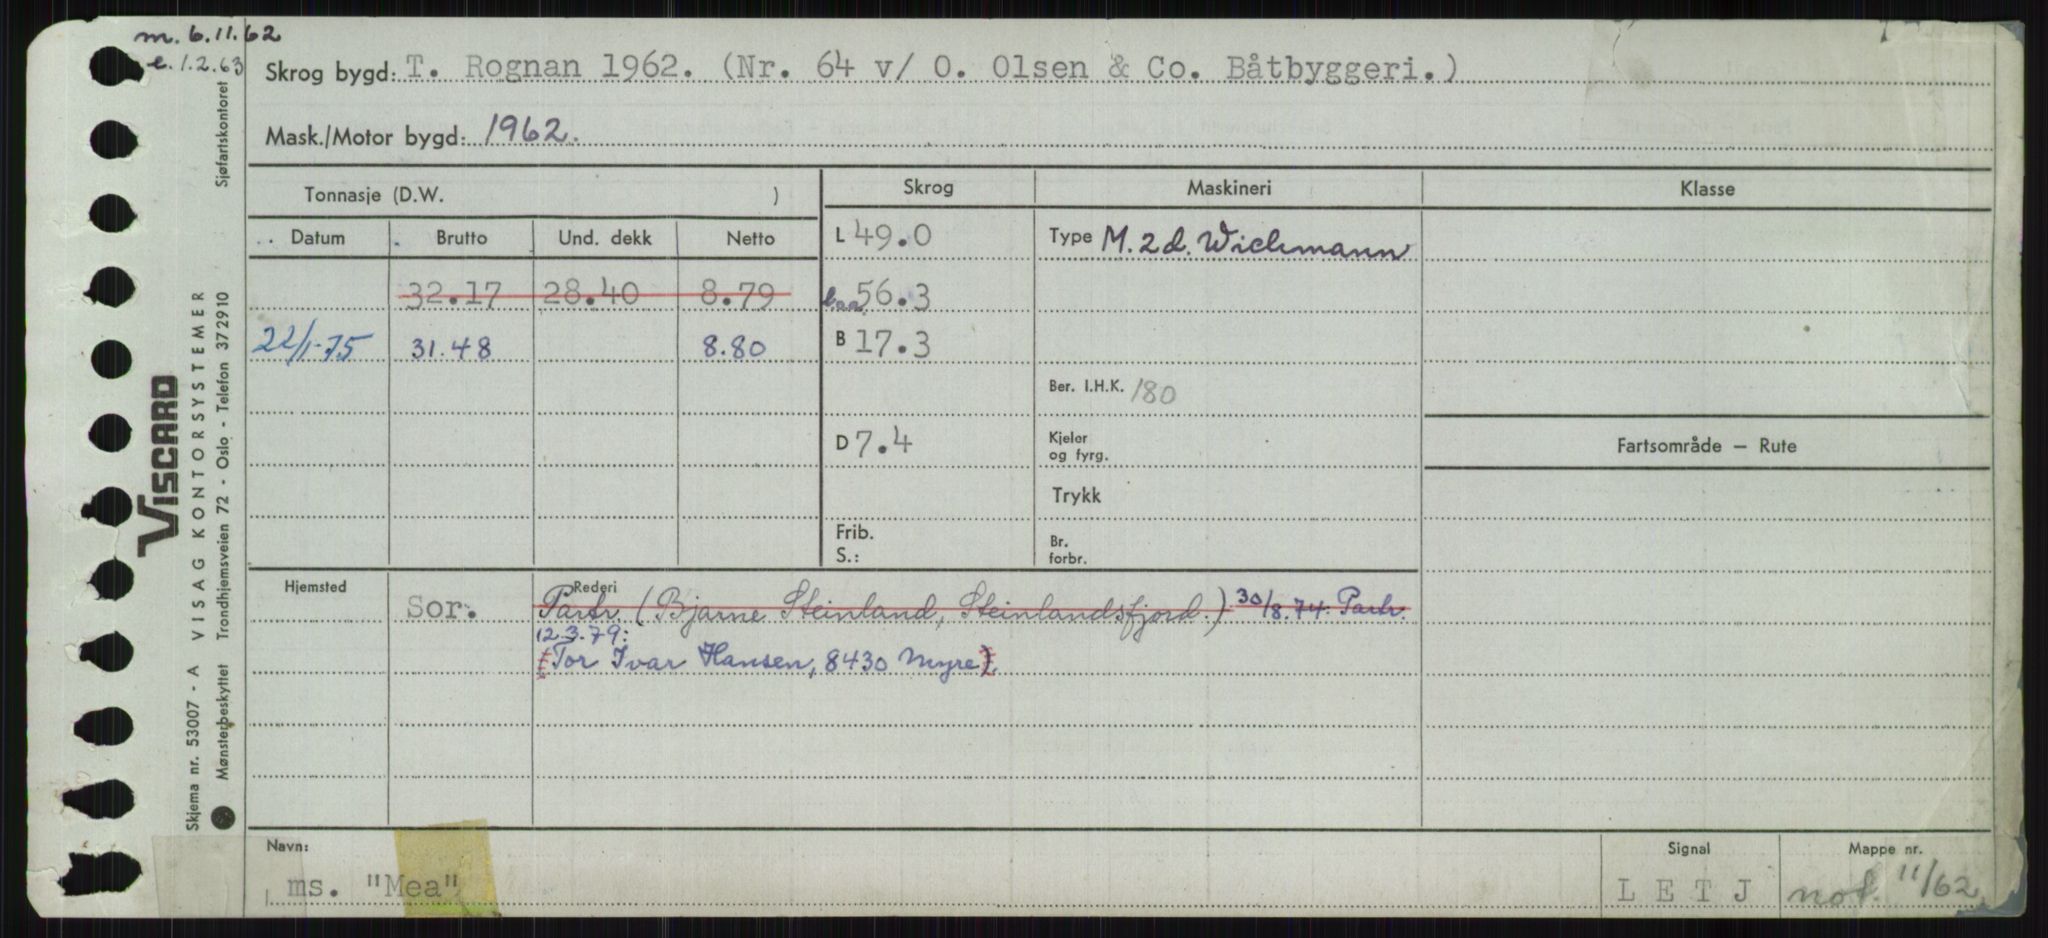 m. 6.11.62
e. 1.2.63
Skrog bygd: T. Rognan 1962. (Nr. 64 v/ O. Olsen & Co. Båtbyggeri.)
Mask./Motor bygd: 1962.
Tonnasje (D.W. )
Skrog
Maskineri
Klasse
Datum
Brutto
Und. dekk
Netto
L 49.0
Type M. 2 d. Wichmann
32.17 28.40 8.79
l.o.a. 56.3
22/1-75 31.48 8.80
B 17.3
Ber. I.H.K. 180
D 7.4
Kjeler
og fyrg.
Fartsområde — Rute
Trykk
Frib.
S.:
Br.
forbr.
Hjemsted
Rederi
Sor.
Partr. (Bjarne Steinland, Steinlandsfjord.) 30/8.74: Partr.
12.3.79:
(Tor Ivar Hansen, 8430 Myre).
Navn:
ms. "Mea"
Signal
LETJ
Mappe nr.
not. 11/62
Sjøfartskontoret
VISCARD
VISAG KONTORSYSTEMER
Trondhjemsveien 72 - Oslo - Telefon 372910
Skjema nr. 53007 - A
Mønsterbeskyttet